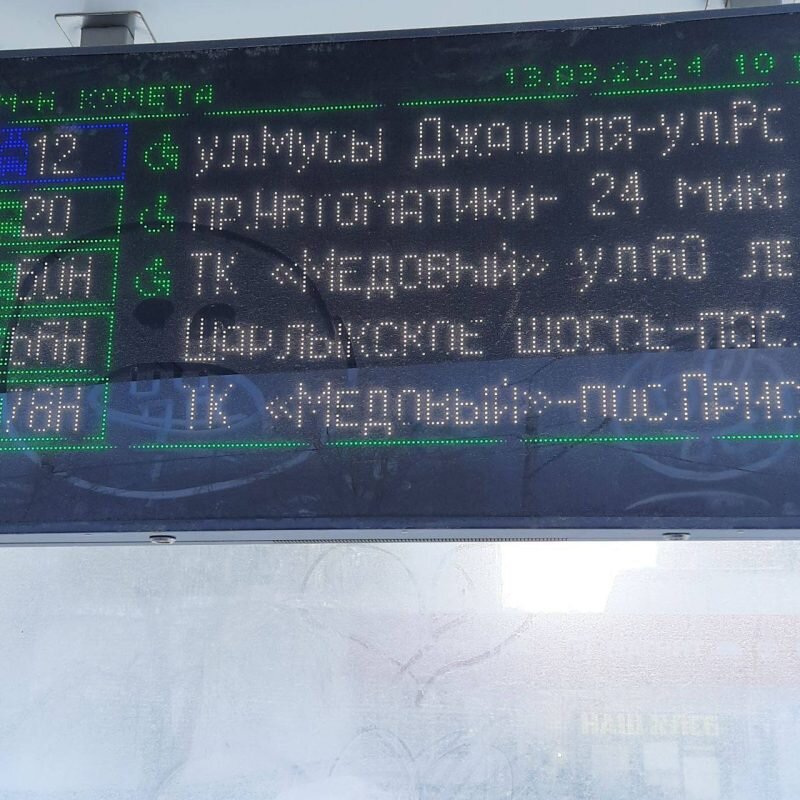 М-Н КОМЕТА 13.03.2024 10
12 ул.Мусы Джалиля-ул.Ро
20 пр.Автоматики- 24 микр
ТК «Медовый» ул.60 ле
Шарлыкское шоссе-пос.
ТК «Медовый»-пос.Приг
НАШ ХЛЕБ